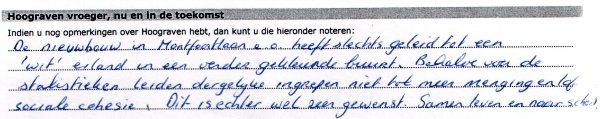 Hoograven vroeger, nu en in de toekomst
Indien u nog opmerkingen over Hoograven hebt, dan kunt u die hieronder noteren:
De nieuwbouw in Hoatfoatlaan e.o. heeft slechts geleid tot een
'wit' eiland in een verder gekleurde buurt. Behalve voor de
statistieken leiden dergelijke ingrepen niet tot meer menging en/of
sociale cohesie. Dit is echter wel zeer gewenst. Samen leven en naar school